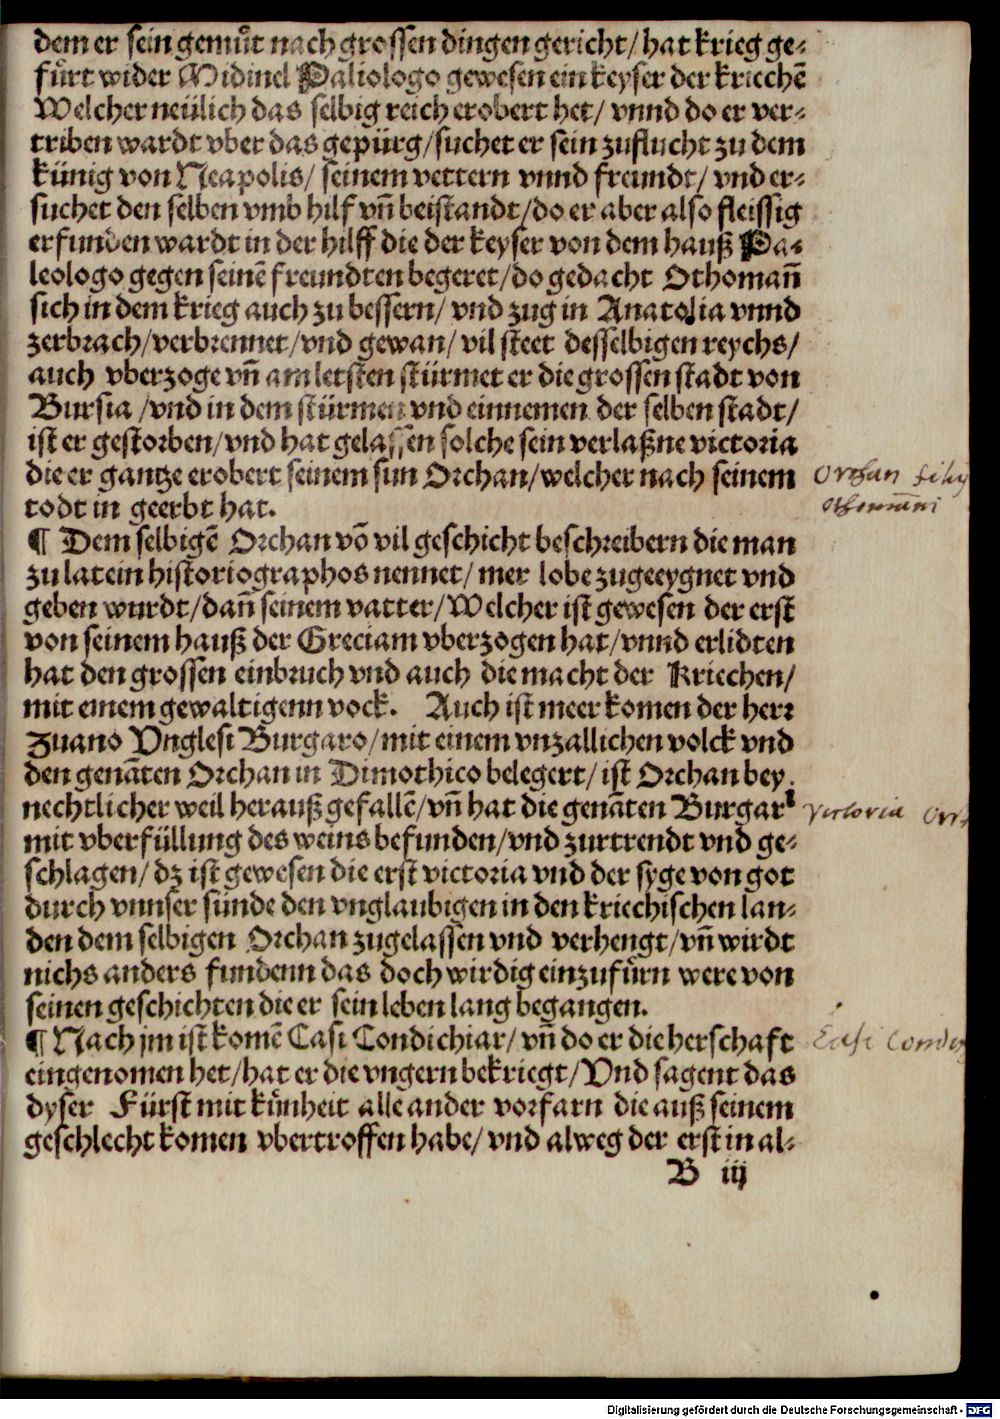 dem er sein gemuͤt nach grossen dingen gericht/ hat krieg ge⸗
fuͤrt wider Midinel Paliologo gewesen ein keyser der kriechē
Welcher neülich das selbig reich erobert het/ vnnd do er ver⸗
triben wardt vber das gepürg/suchet er sein zuflucht zu dem
künig von Neapolis/ seinem vettern vnnd freundt/ vnd er⸗
suchet den selben vmb hilf vñ beistandt/do er aber also fleissig
erfunden wardt in der hilff die der keyser von dem hauß Pa⸗
leologo gegen seinē freundten begeret/do gedacht Othomañ
sich in dem krieg auch zu bessern/ vnd zug in Anatolia vnnd
zerbrach/verbrennet/vnd gewan/ vil steet desselbigen reychs/
auch vberzoge vñ am letsten stürmet er die grossen stadt von
Bursia /vnd in dem stürmen vnd einnemen der selben stadt/
ist er gestorben/vnd hat gelassen solche sein verlaßne victoria
die er gantze erobert seinem sun Orchan/welcher nach seinem
todt in geerbt hat.
Orchan filiꝯ
Othomāni
¶ Dem selbigē Orchan vō vil geschicht beschreibern die man
zu latein historiographos nennet/ mer lobe zugeeygnet vnd
geben wurdt/dañ seinem vatter/Welcher ist gewesen der erst
von seinem hauß der Greciam vberzogen hat/vnnd erlidten
hat den grossen einbruch vnd auch die macht der Kriechen/
mit einem gewaltigenn vock. Auch ist meer komen der herꝛ
Zuano Vnglesi Burgaro/mit einem vnzallichen volck vnd
den genāten Orchan in Dimothico belegert/ ist Orchan bey
nechtlicher weil herauß gefallē/vñ hat die genāten Burgarͥ
mit vberfüllung des weins befunden/vnd zurtrendt vnd ge⸗
schlagen/ dz ist gewesen die erst victoria vnd der syge von got
durch vnnser sünde den vnglaubigen in den kriechischen lan⸗
den dem selbigen Orchan zugelassen vnd verhengt/vñ wirdt
nichs anders fundenn das doch wirdig einzufuͤrn were von
seinen geschichten die er sein leben lang begangen.
Victoria Orch
¶ Nach jm ist komē Casi Condichiar/ vñ do er die herschaft
eingenomen het/hat er die vngern bekriegt/Vnd sagent das
dyser Fürst mit kuͤnheit alle ander vorfarn die auß seinem
geschlecht komen vbertroffen habe/ vnd alweg der erst in al⸗
Casi Condi
B iij
Digitalisierung gefördert durch die Deutsche Forschungsgemeinschaft - DFG